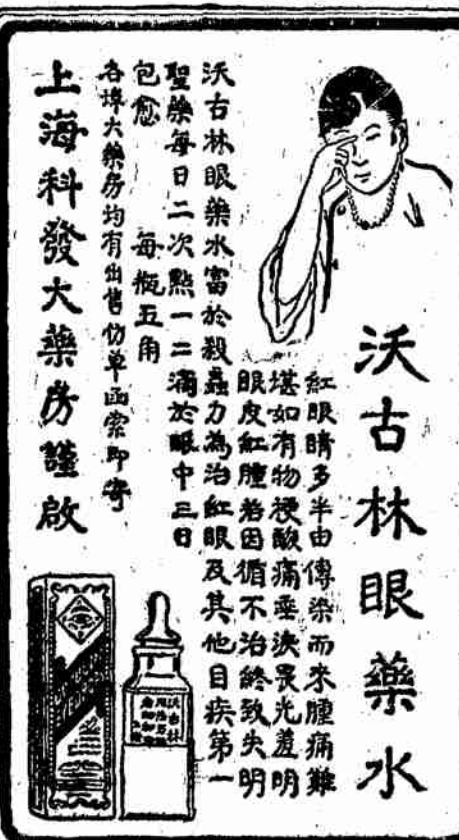 沃古林眼藥水
紅眼睛多半由傳染而來腫痛難
堪如有物梗酸痛垂淚畏光羞明
眼皮紅腫若因循不治終致失明
沃古林眼藥水富於殺蟲力為治紅眼及其他目疾第一
聖藥每日二次點一二滴於眼中三日
包愈 每瓶五角
各埠大藥房均有出售仿單函索即寄
上海科發大藥房謹啟
沃古林